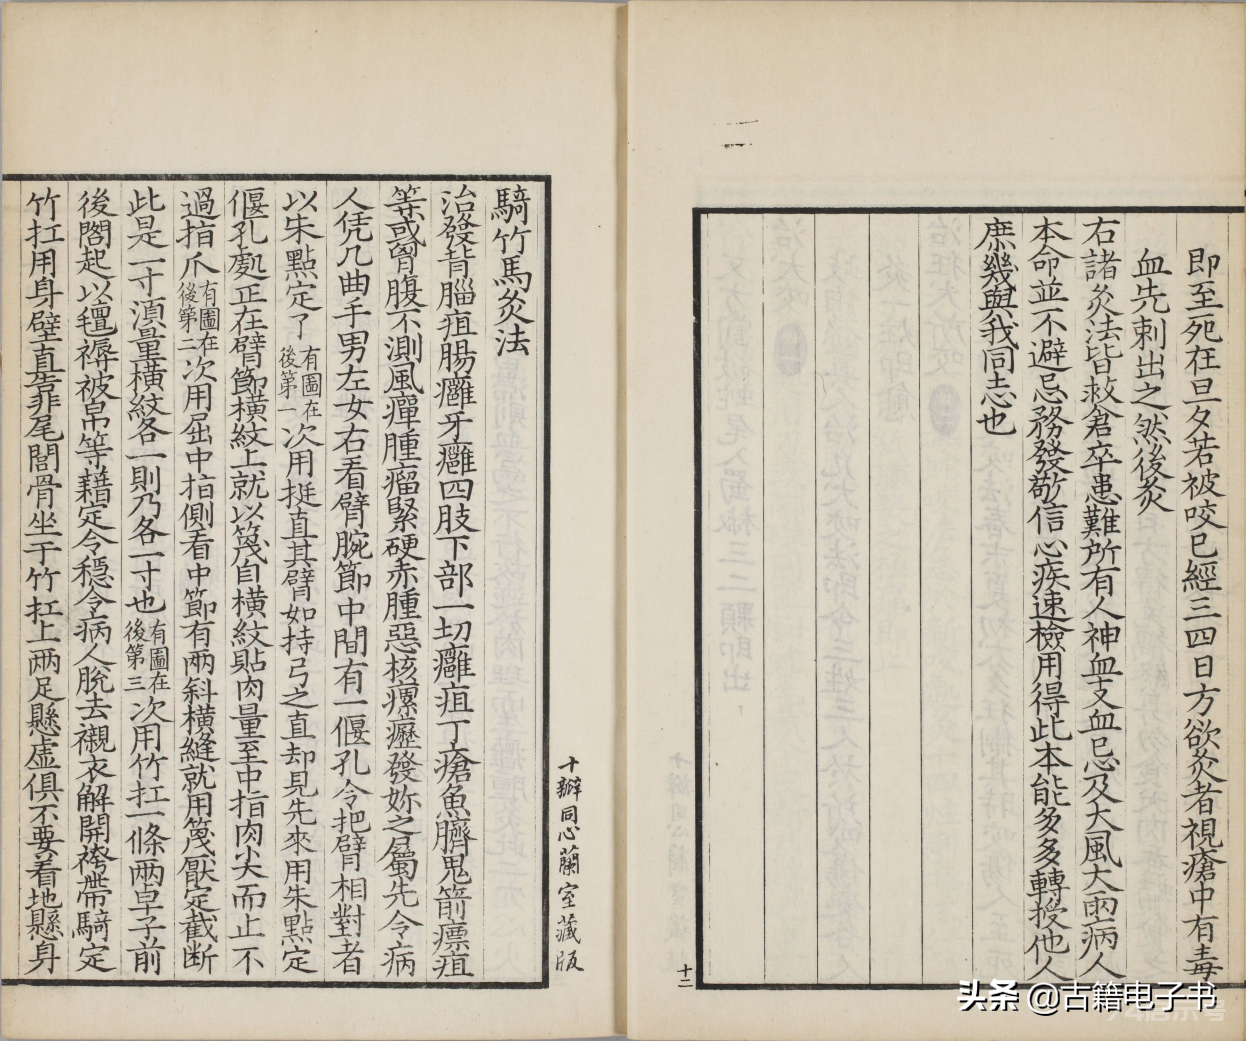 即至死在旦夕若被咬已經三四日方欲灸者視瘡中有毒
血先刺出之然後灸
右諸灸法皆救倉卒患難所有人神血支血忌及大風大雨病人
本命並不避忌務發敬信心疾速檢用得此本能多多轉授他人
庶幾與我同志也
十二
騎竹馬灸法
治發背腦疽腸癰牙癰四肢下部一切癰疽丁瘡魚臍鬼箭瘭疽
等或胷腹不測風癉腫瘤緊硬赤腫惡核瘰癧發妳之屬先令病
人凭几曲手男左女右看臂腕節中間有一偃孔令把臂相對者
以朱點定了有圖在後第一次用挺直其臂如持弓之直却見先來用朱點定
偃孔處正在臂節橫紋上就以篾自橫紋貼肉量至中指肉尖而止不
過指爪有圖在後第二次用屈中指側看中節有兩斜橫縫就用篾厭定截斷
此是一寸須量橫紋各一則乃各一寸也有圖在後第三次用竹扛一條兩卓子前
後閣起以氊褥被帛等藉定令穩令病人脫去襯衣解開袴帶騎定
竹扛用身壁直靠尾閭骨坐于竹扛上兩足懸虛俱不要着地懸身
十瓣同心蘭室藏版
头条 @古籍电子书